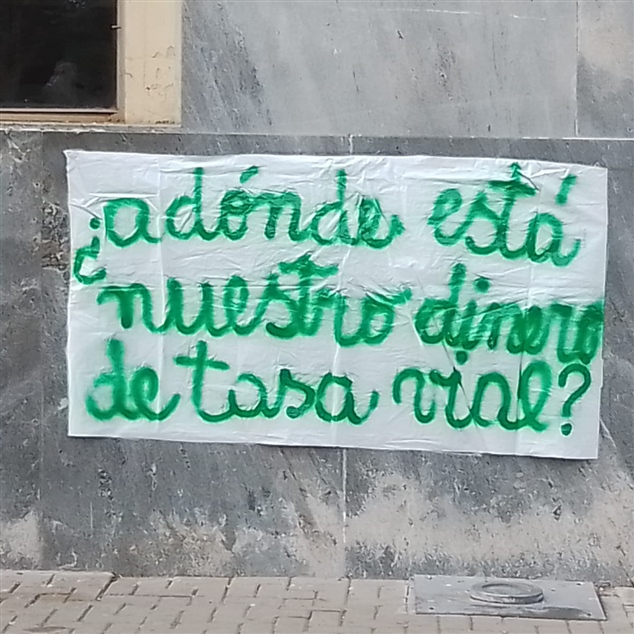 ¿adónde está
nuestro dinero
de tasa vial?